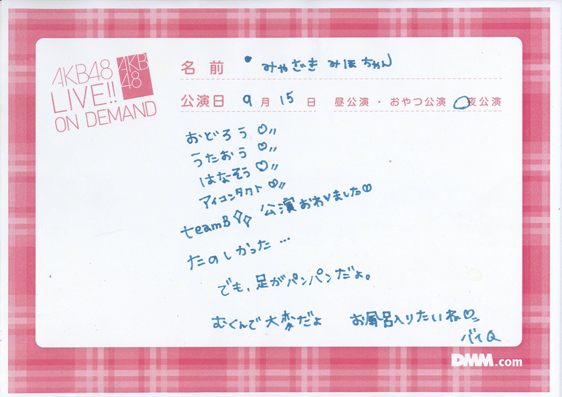 AKB48
LIVE!!
ON DEMAND
AKB
48
名前 みやざき みほちゃん
公演日 9月15日 昼公演・おやつ公演 ○夜公演
おどろう♡〃
うたおう♡〃
はなそう♡〃
アイコンタクト♡〃
teamB◇◇ 公演おわりました♡
たのしかった…
でも、足がパンパンだよ。
むくんで大変だよ お風呂入りたいね♡
バイQ
DMM.com